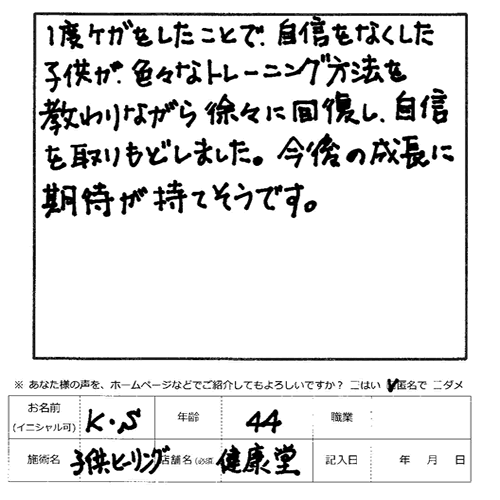 1度ケガをしたことで、自信をなくした
子供が、色々なトレーニング方法を
教わりながら徐々に回復し、自信
を取りもどしました。今後の成長に
期待が持てそうです。
※ あなた様の声を、ホームページなどでご紹介してもよろしいですか？ □はい ☑匿名で □ダメ
お名前 (イニシャル可) K・S 年齢 44 職業
施術名 子供ヒーリング 店舗名 (必須) 健康堂 記入日 年 月 日